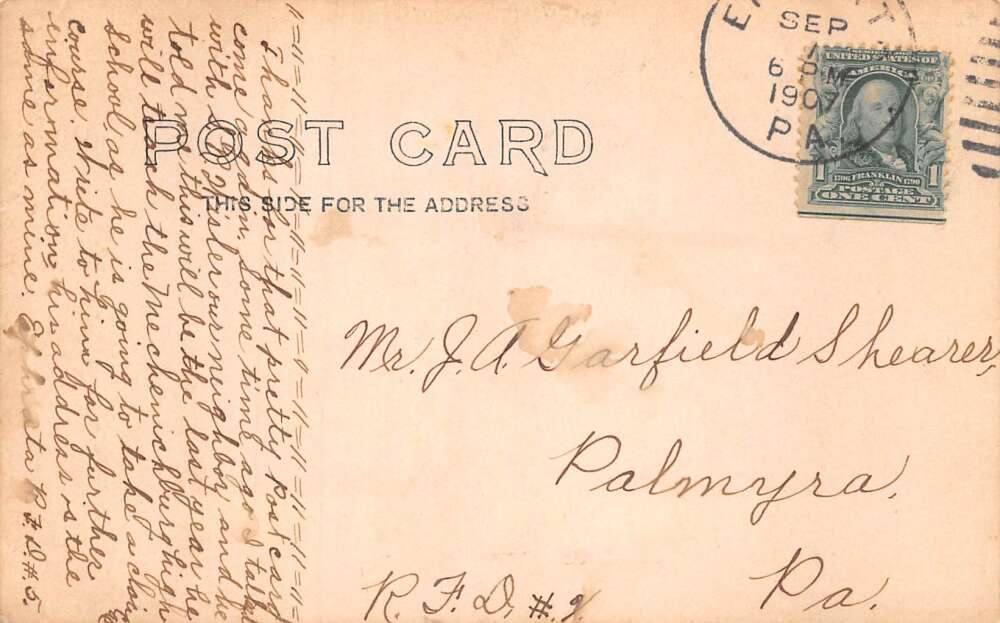 POST CARD
THIS SIDE FOR THE ADDRESS
SEP
6
M
1907
PA.
UNITED STATES OF
AMERICA
1 1706 FRANKLIN 1790 1
POSTAGE
ONE CENT
Mr. J. A. Garfield Shearer,
Palmyra,
Pa.
R. F. D. #
Thanks for that pretty Post card
come again, Some time ago I talked
with our neighboy and he
told me thus will be the last year he
will teach the Mechenicsburg high
School, as he is going to take a
course. write to him for further
information, his address is the
same as mine. Ephrata R. F. D. #5.